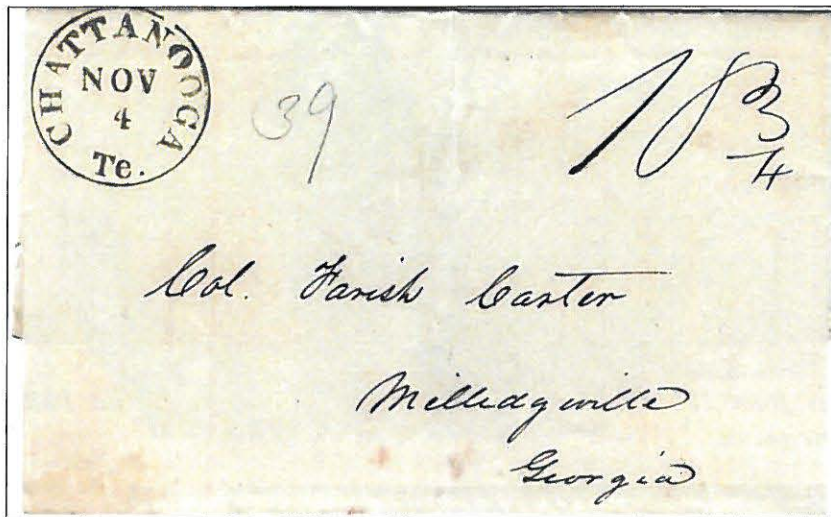 CHATTANOOGA
NOV
4
Te.
39
18 3/4
Col. Farish Carter
Milledgville
Georgia